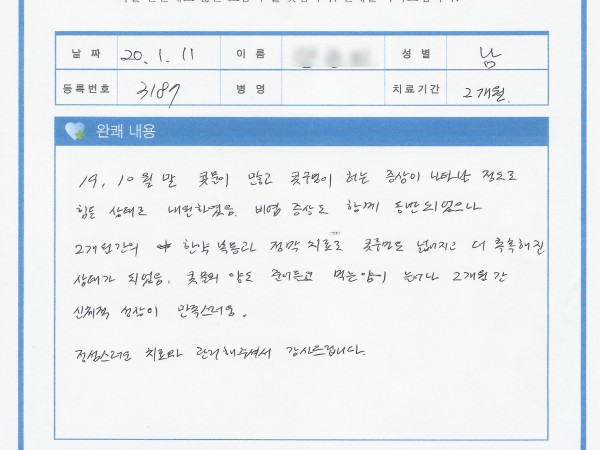 날 짜 20. 1. 11 이 름 성 별 남
등록번호 3187 병 명 치료기간 2개월.
완쾌 내용
19, 10월 말 콧물이 많고 콧구멍이 허는 증상이 나타난 정도로
힘든 상태로 내원하였음. 비염 증상도 함께 동반되었으나
2개월간의 한약 복용과 점막 치료로 콧구멍도 넓어지고 더 촉촉해진
상태가 되었음. 콧물의 양도 줄어들고 먹는양이 늘어나 2개월간
신체적 성장이 만족스러움.
정성스러운 치료와 관리해주셔서 감사드립니다.